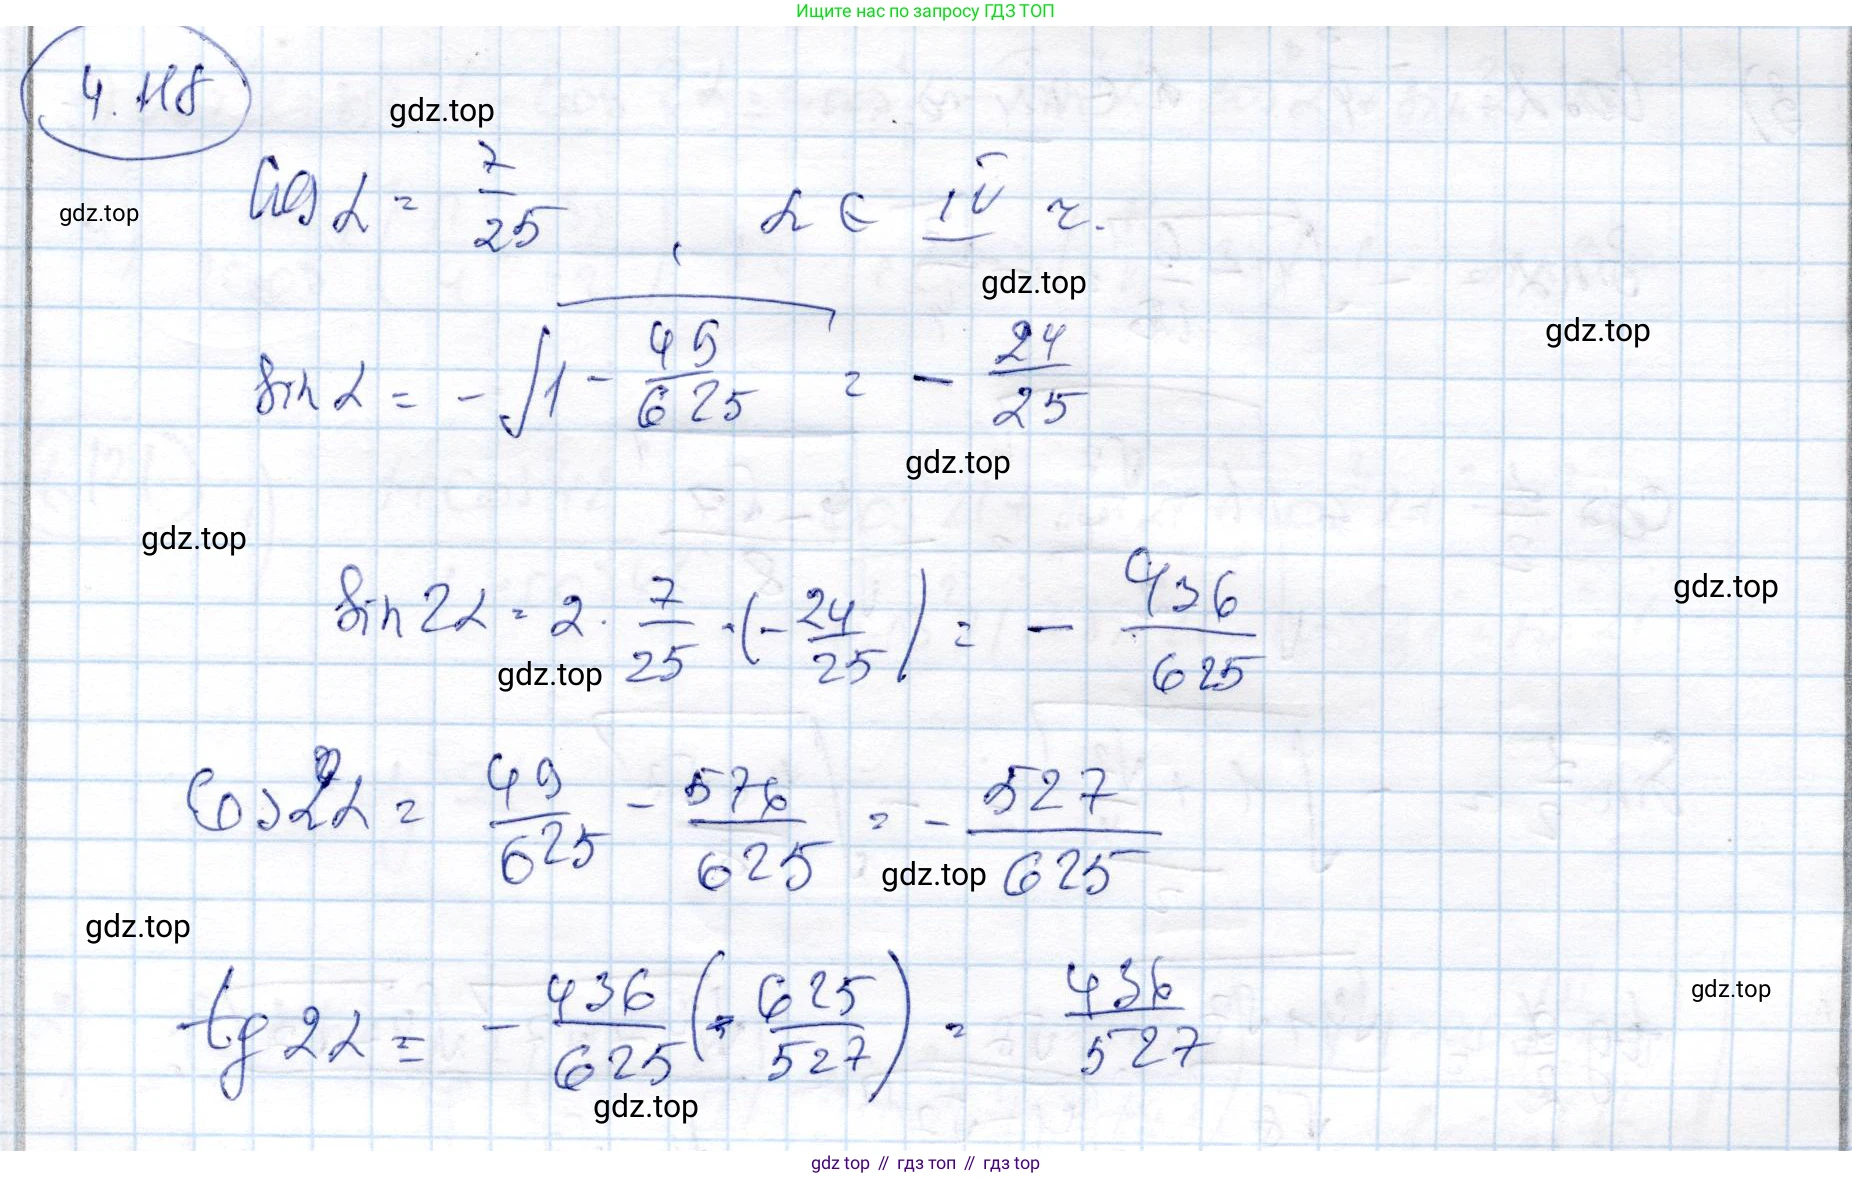 Ищите нас по запросу ГДЗ ТОП
4.118
gdz.top
cos α = 7/25 , α ∈ IV ч.
gdz.top
gdz.top
gdz.top
sin α = - √(1 - 49/625) = - 24/25
gdz.top
gdz.top
gdz.top
sin 2α = 2 · 7/25 · (- 24/25) = - 436/625
gdz.top
cos 2α = 49/625 - 576/625 = - 527/625
gdz.top
gdz.top
tg 2α = - 436/625 (- 625/527) = 436/527
gdz.top
gdz.top
gdz top // гдз топ // гдз top